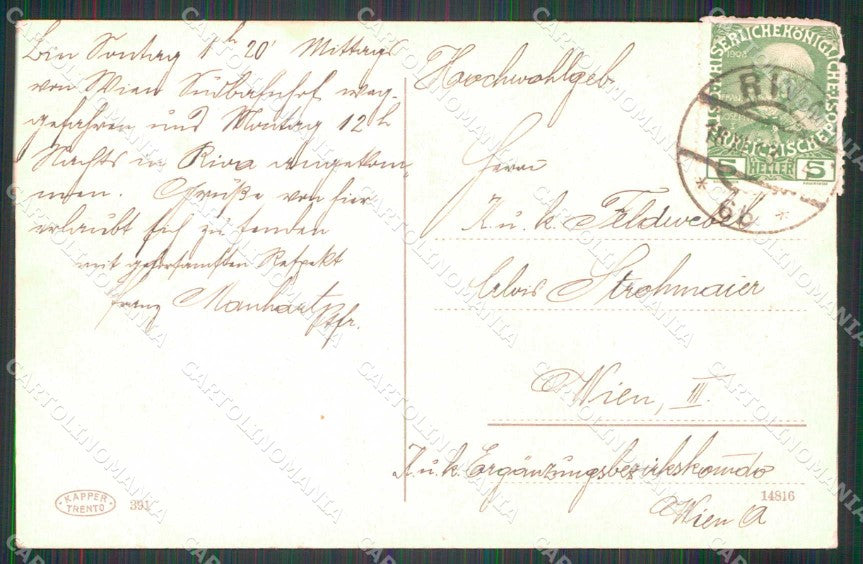 Bin Sontag 1h 20' Mittags
von Wien Südbahnhof weg-
gefahren und Montag 12h
Nachts in Riva angekom-
men. Grüße von hier
erlaubt sich zu senden
mit gehorsamsten Respekt
Franz Manhart
Hochwohlgeb.
Herrn
K. u. k. Feldwebel
Alois Strohmaier
Wien, III.
K. u. k. Ergänzungsbezirkskomdo
Wien A
KAISERLICHEKÖNIGLICHEÖSTERREICHISCHEPOST
1908
5 HELLER 5
RIVA
6b
KAPPER
TRENTO
391
14816
CARTOLINOMANIA